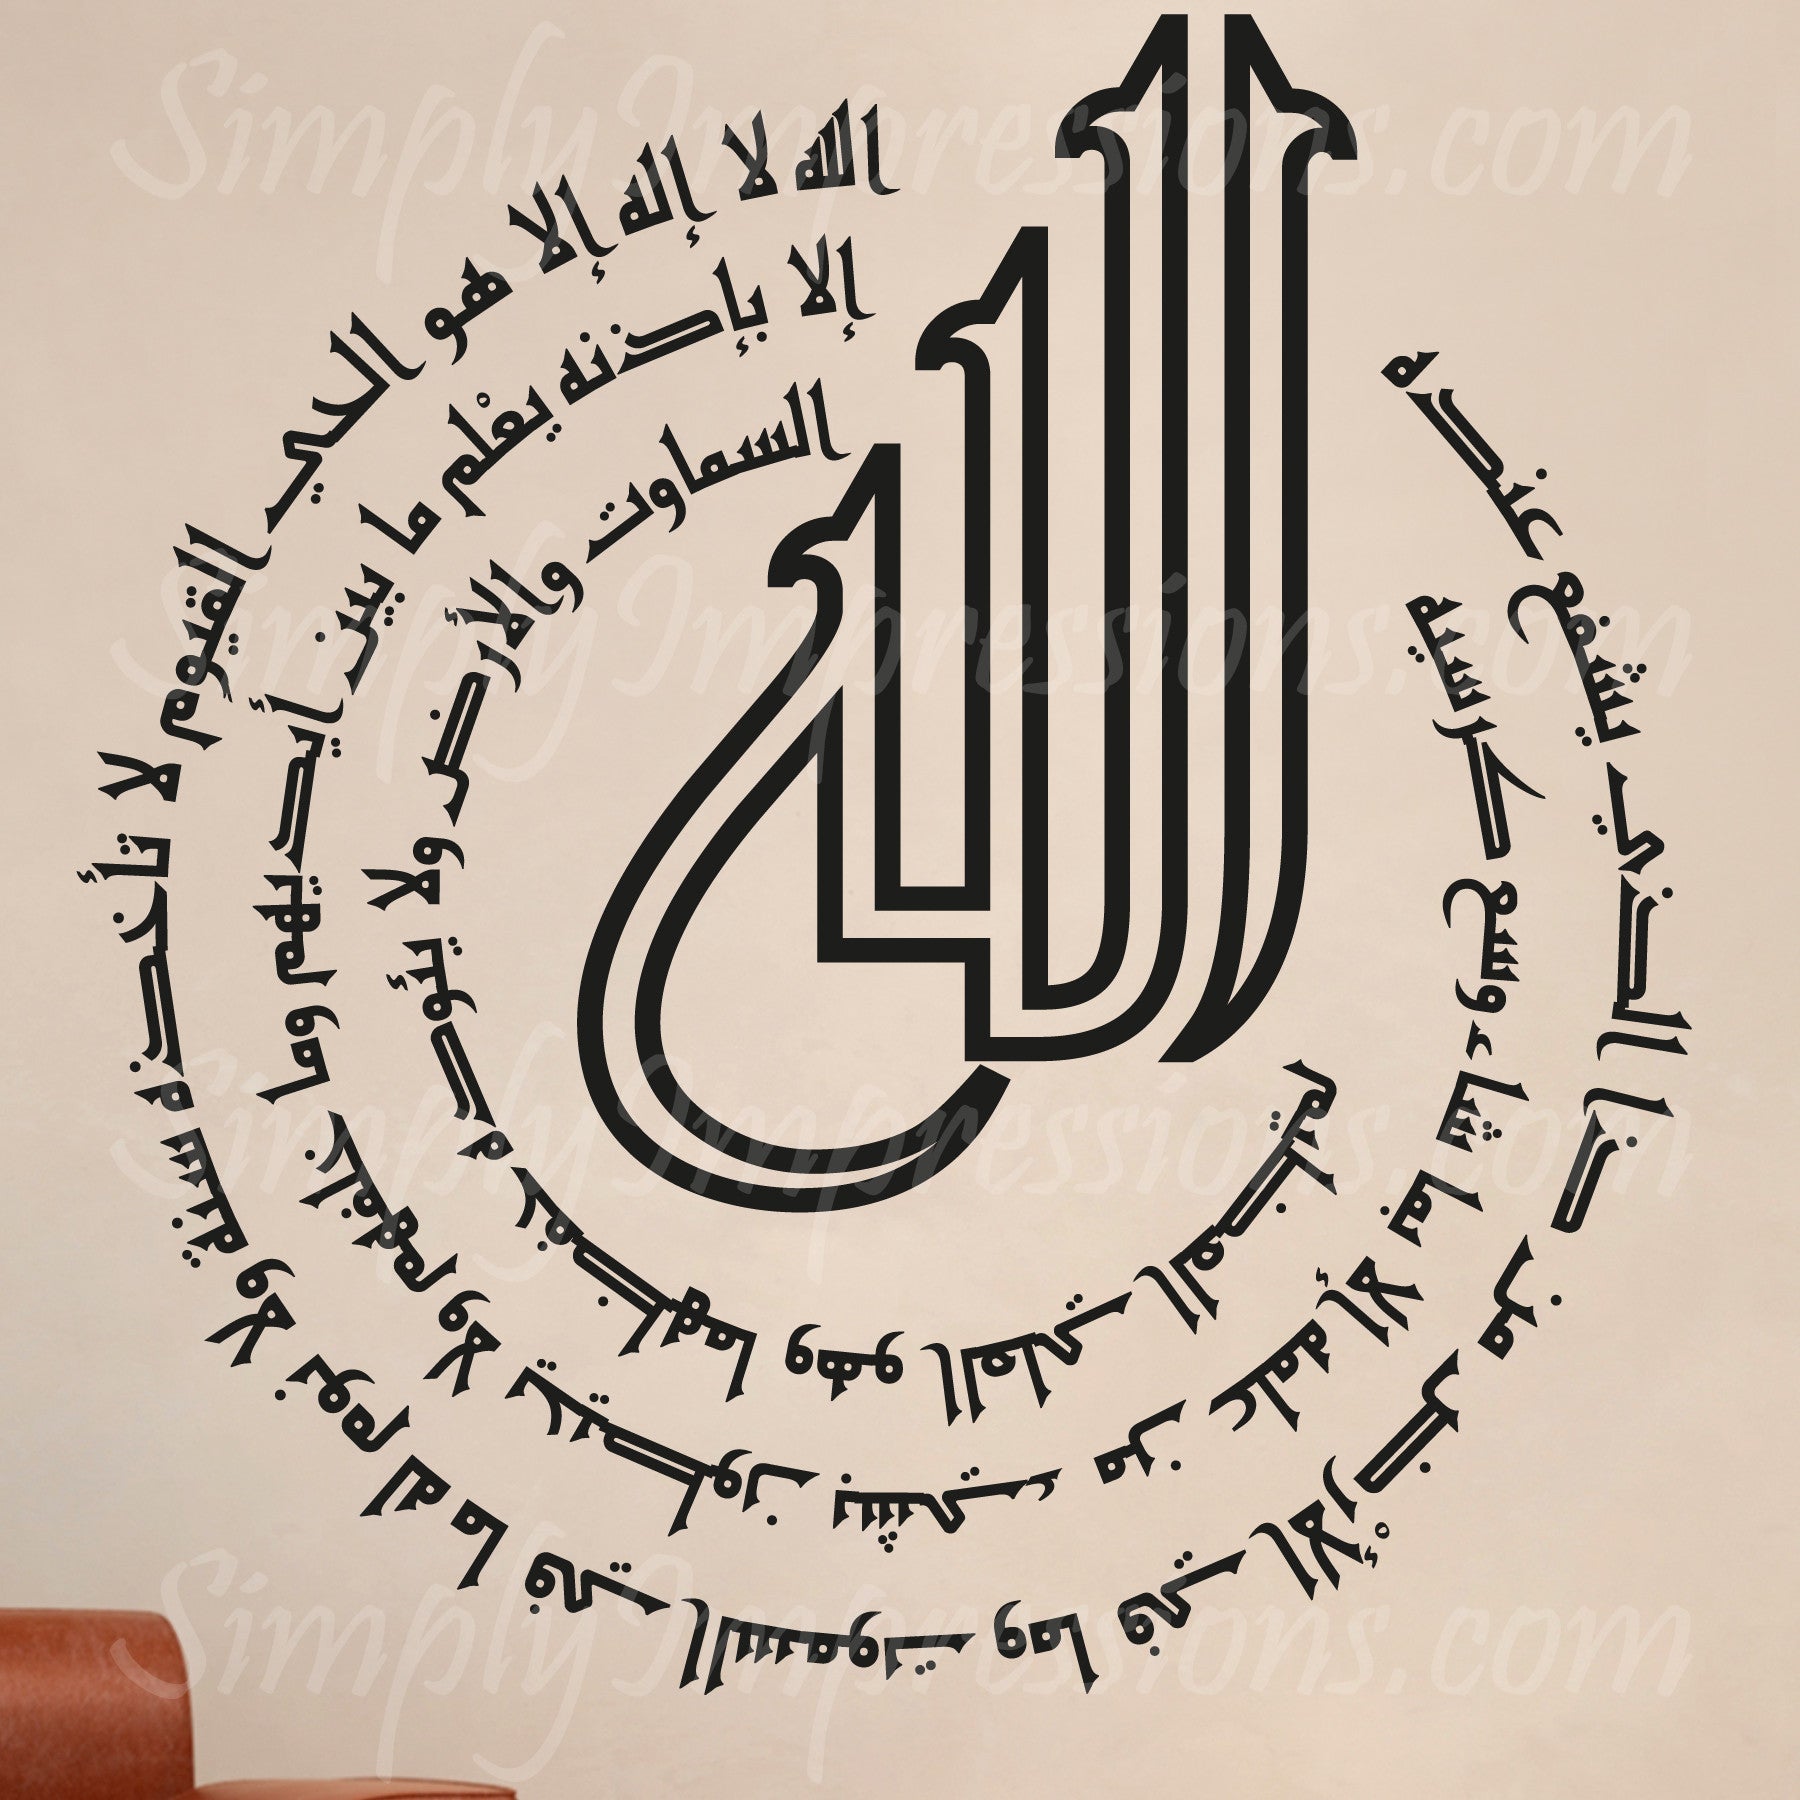 الله
الله لا إله إلا هو الحي القيوم لا تأخذه سنة ولا نوم له ما في السموت وما في الأْرض من ذا الذي يشفع عنده
إلا بإذنه يعْلم ما بين أيديهم وما خلفهم ولا يحيطون بشيء من علمه إلا بما شاء وسع كرسيه
السماوت والأرض ولا يئوده حفظهما وهو العلي العظيم
SimplyImpressions.com
SimplyImpressions.com
SimplyImpressions.com
SimplyImpressions.com